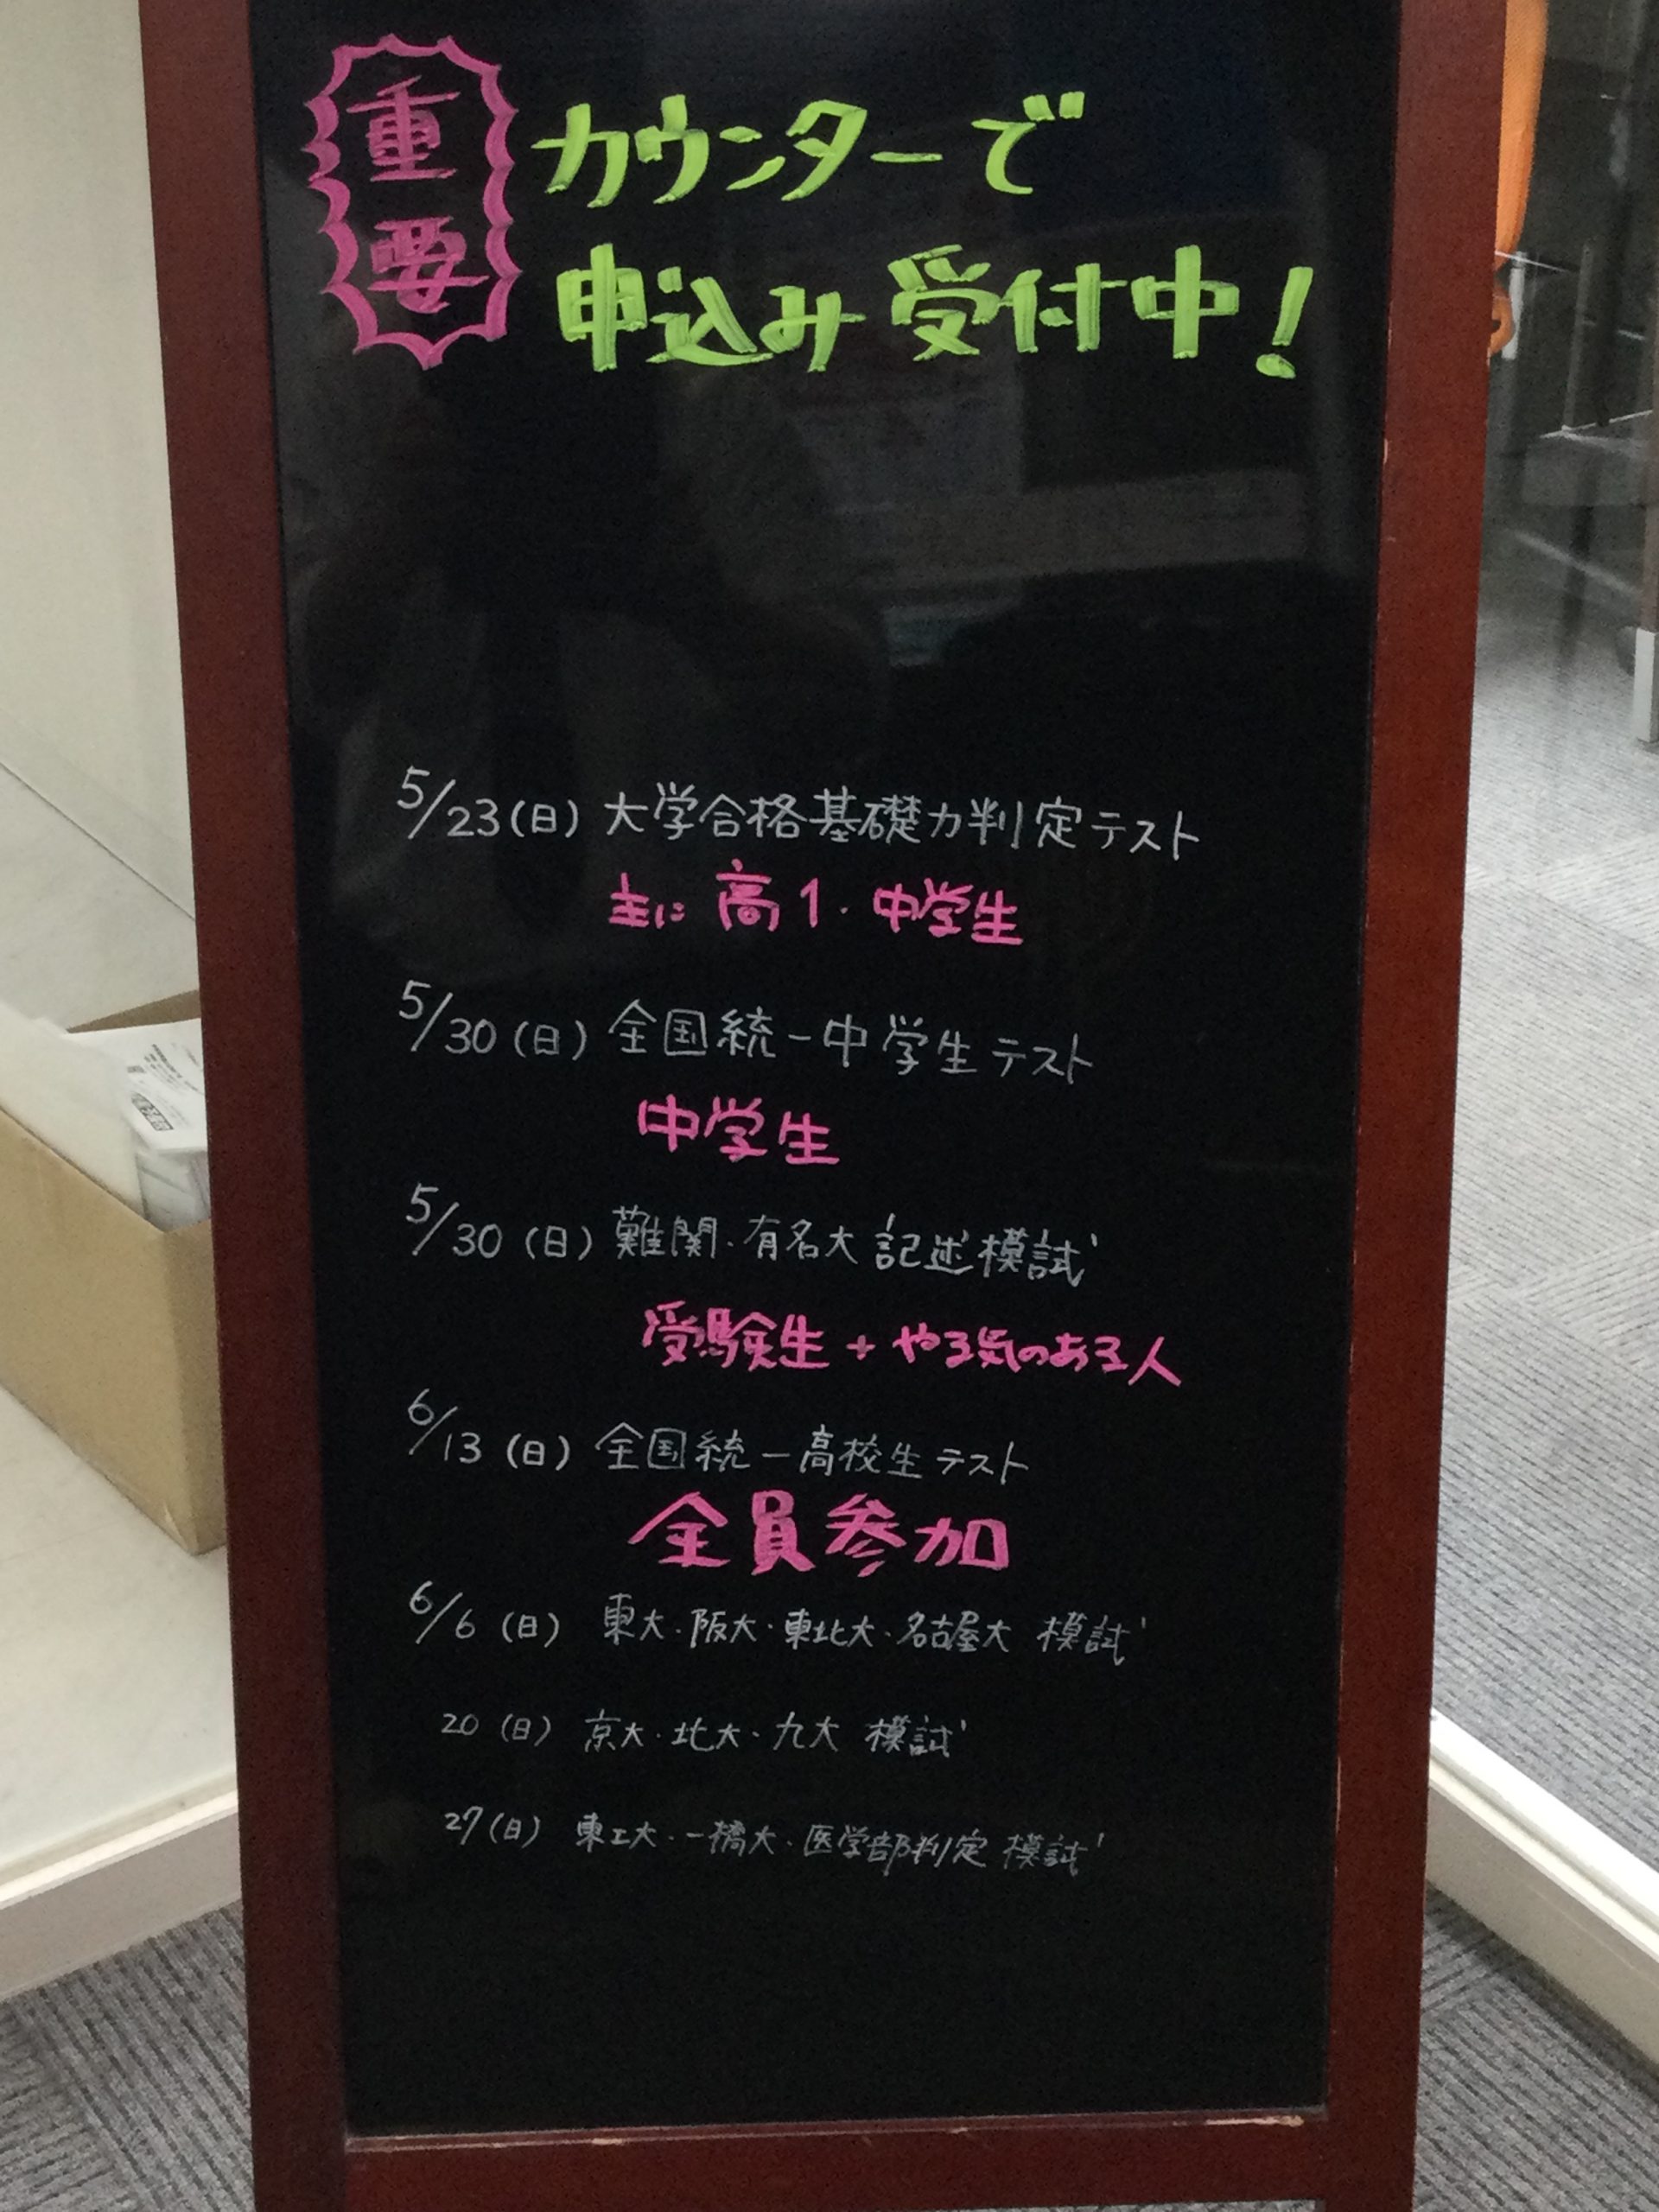 重要
カウンターで
申込み受付中！
5/23(日) 大学合格基礎力判定テスト
主に 高1・中学生
5/30(日) 全国統一中学生テスト
中学生
5/30(日) 難関・有名大記述模試
受験生+やる気のある人
6/13(日) 全国統一高校生テスト
全員参加
6/6(日) 東大・阪大・東北大・名古屋大 模試
20(日) 京大・北大・九大 模試
27(日) 東工大・一橋大・医学部判定 模試